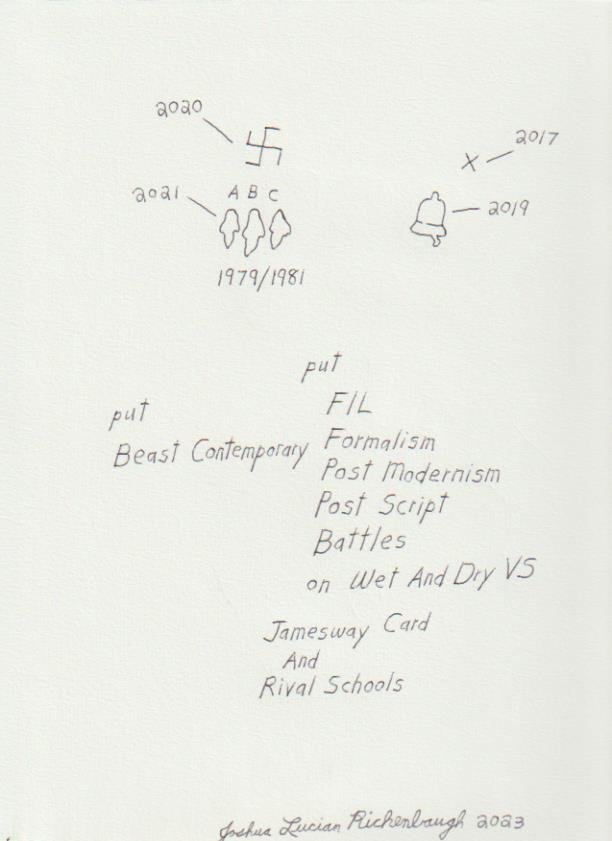 2020
2017
2021
A B C
2019
1979/1981
put
FIL
put
Beast Contemporary
Formalism
Post Modernism
Post Script
Battles
on Wet And Dry VS
Jamesway Card
And
Rival Schools
Joshua Lucian Richenbaugh 2023